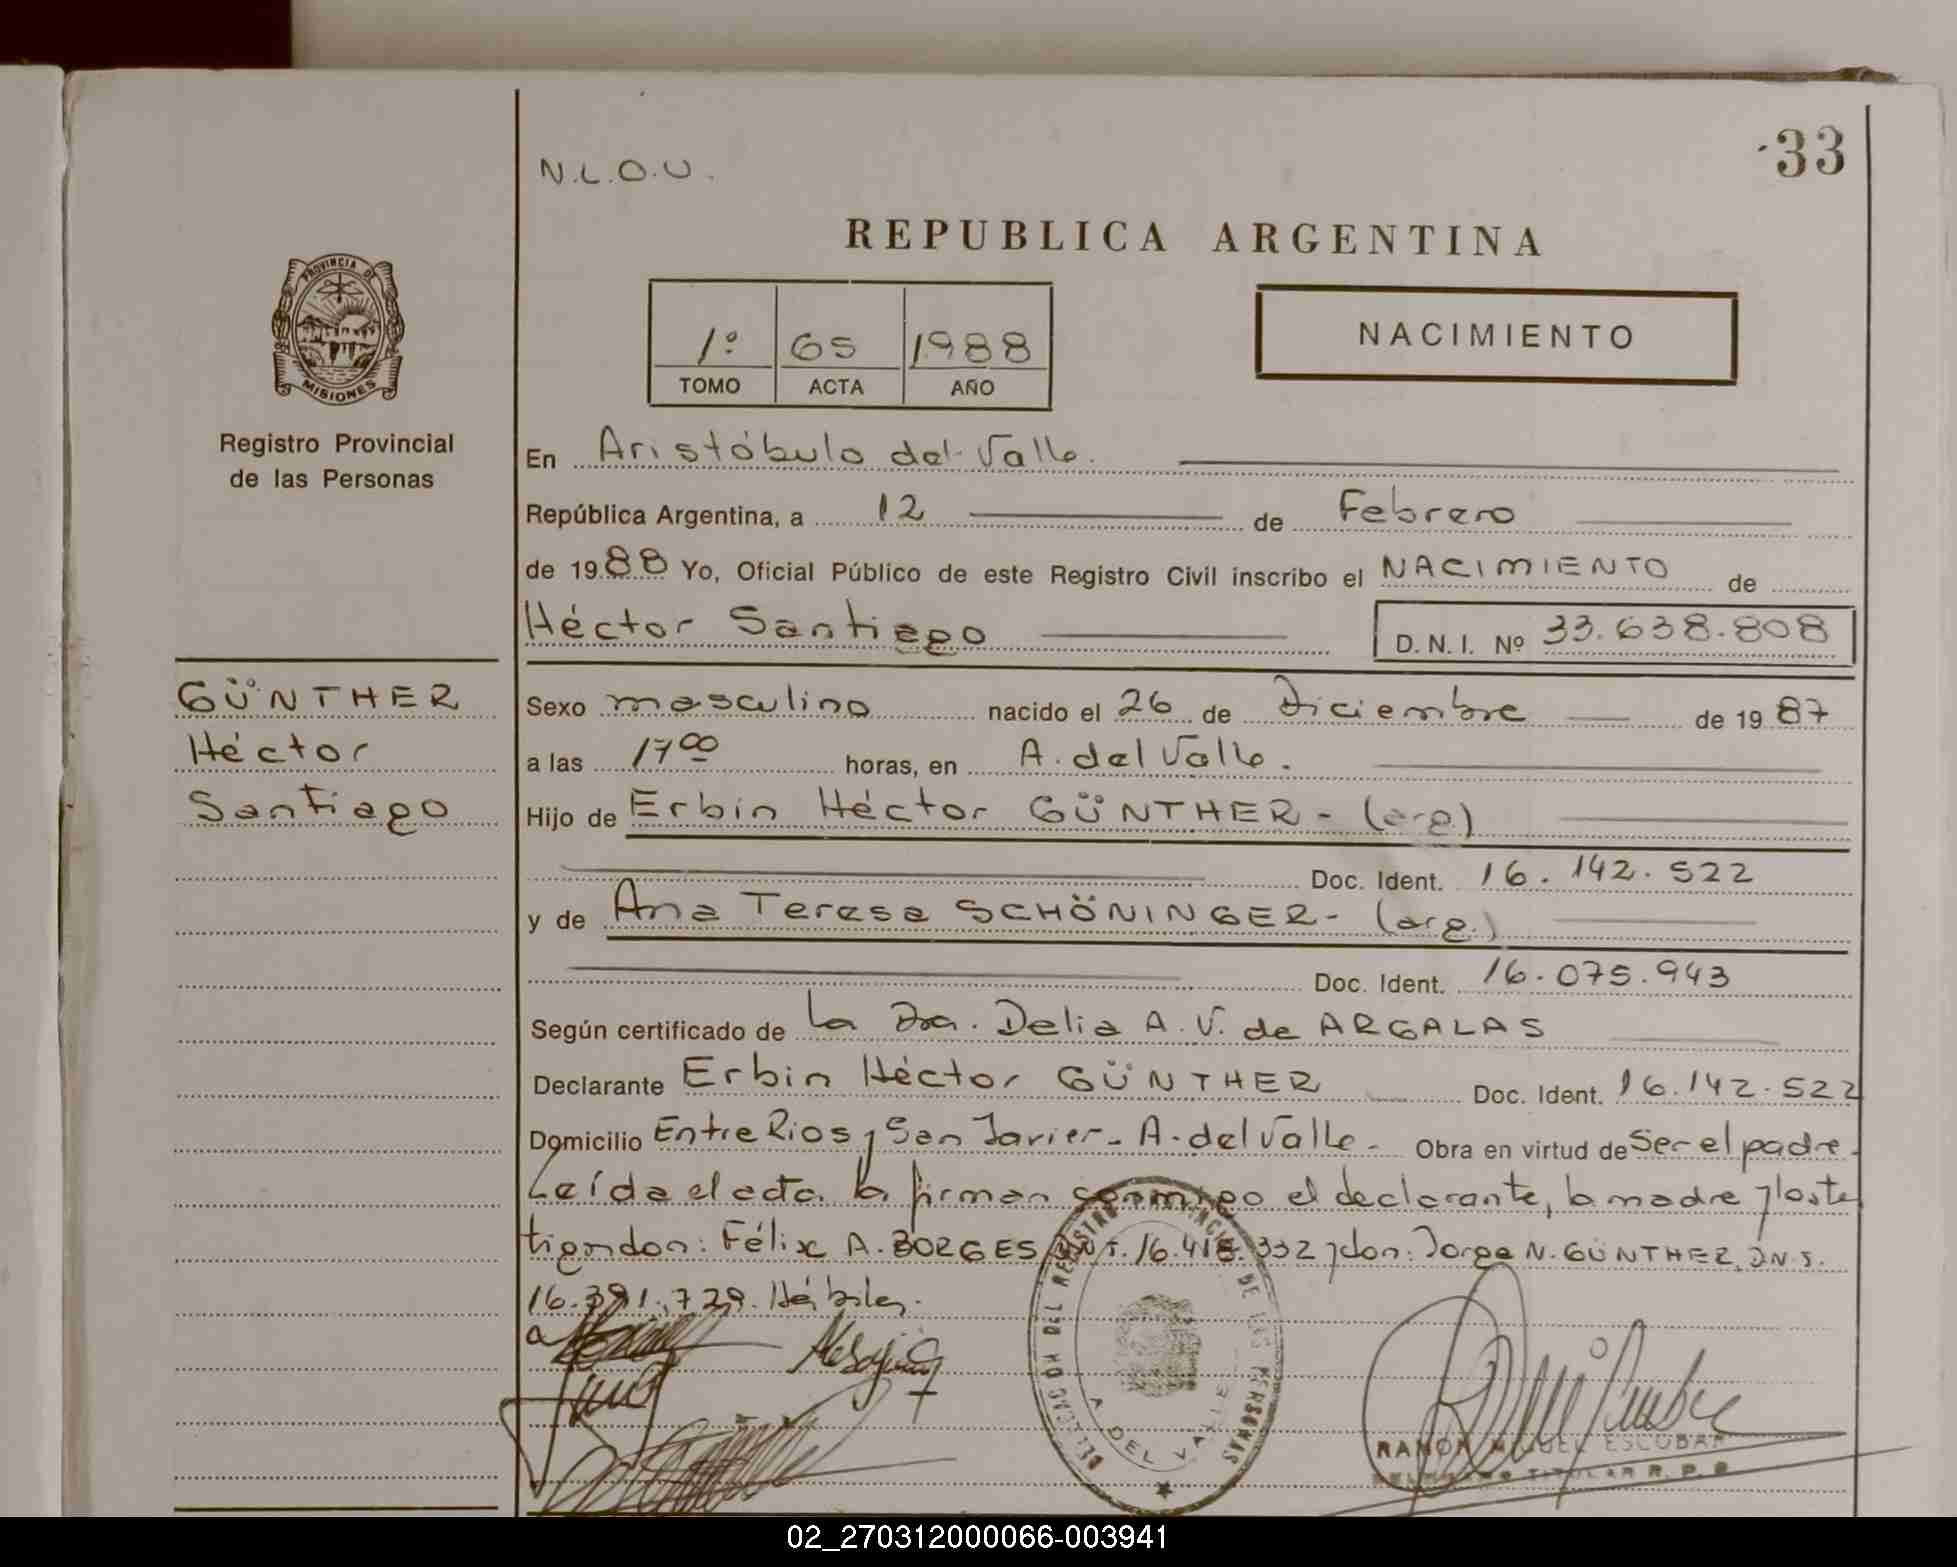 33
N.L.O.U.
REPUBLICA ARGENTINA
PROVINCIA DE
MISIONES
Registro Provincial
de las Personas
1º 65 1988
TOMO ACTA AÑO
NACIMIENTO
En Aristóbulo del Valle.
República Argentina, a 12 de Febrero
de 1988 Yo, Oficial Público de este Registro Civil inscribo el NACIMIENTO de
Héctor Santiago D. N. I. Nº 33.638.808
GÜNTHER
Héctor
Santiago
Sexo masculino nacido el 26 de Diciembre de 1987
a las 17 00 horas, en A. del Valle.
Hijo de Erbin Héctor GÜNTHER - (arg)
Doc. Ident. 16.142.522
y de Ana Teresa SCHÖNINGER - (arg.)
Doc. Ident. 16.075.943
Según certificado de la Dra. Delia A. V. de ARGALAS
Declarante Erbin Héctor GÜNTHER Doc. Ident. 16.142.522
Domicilio Entre Rios y San Javier - A. del Valle - Obra en virtud de Ser el padre -
Leída el acta la firman conmigo el declarante, la madre y los tes
tigos don: Félix A. BORGES 16.418.332 y don: Jorge N. GÜNTHER, D.N.I.
16.391.729. Hábiles.
DELEGACION DEL REGISTRO PROVINCIAL DE LAS PERSONAS
A. DEL VALLE
RAMON MIGUEL ESCOBAR
TITULAR R. P. P.
02_270312000066-003941